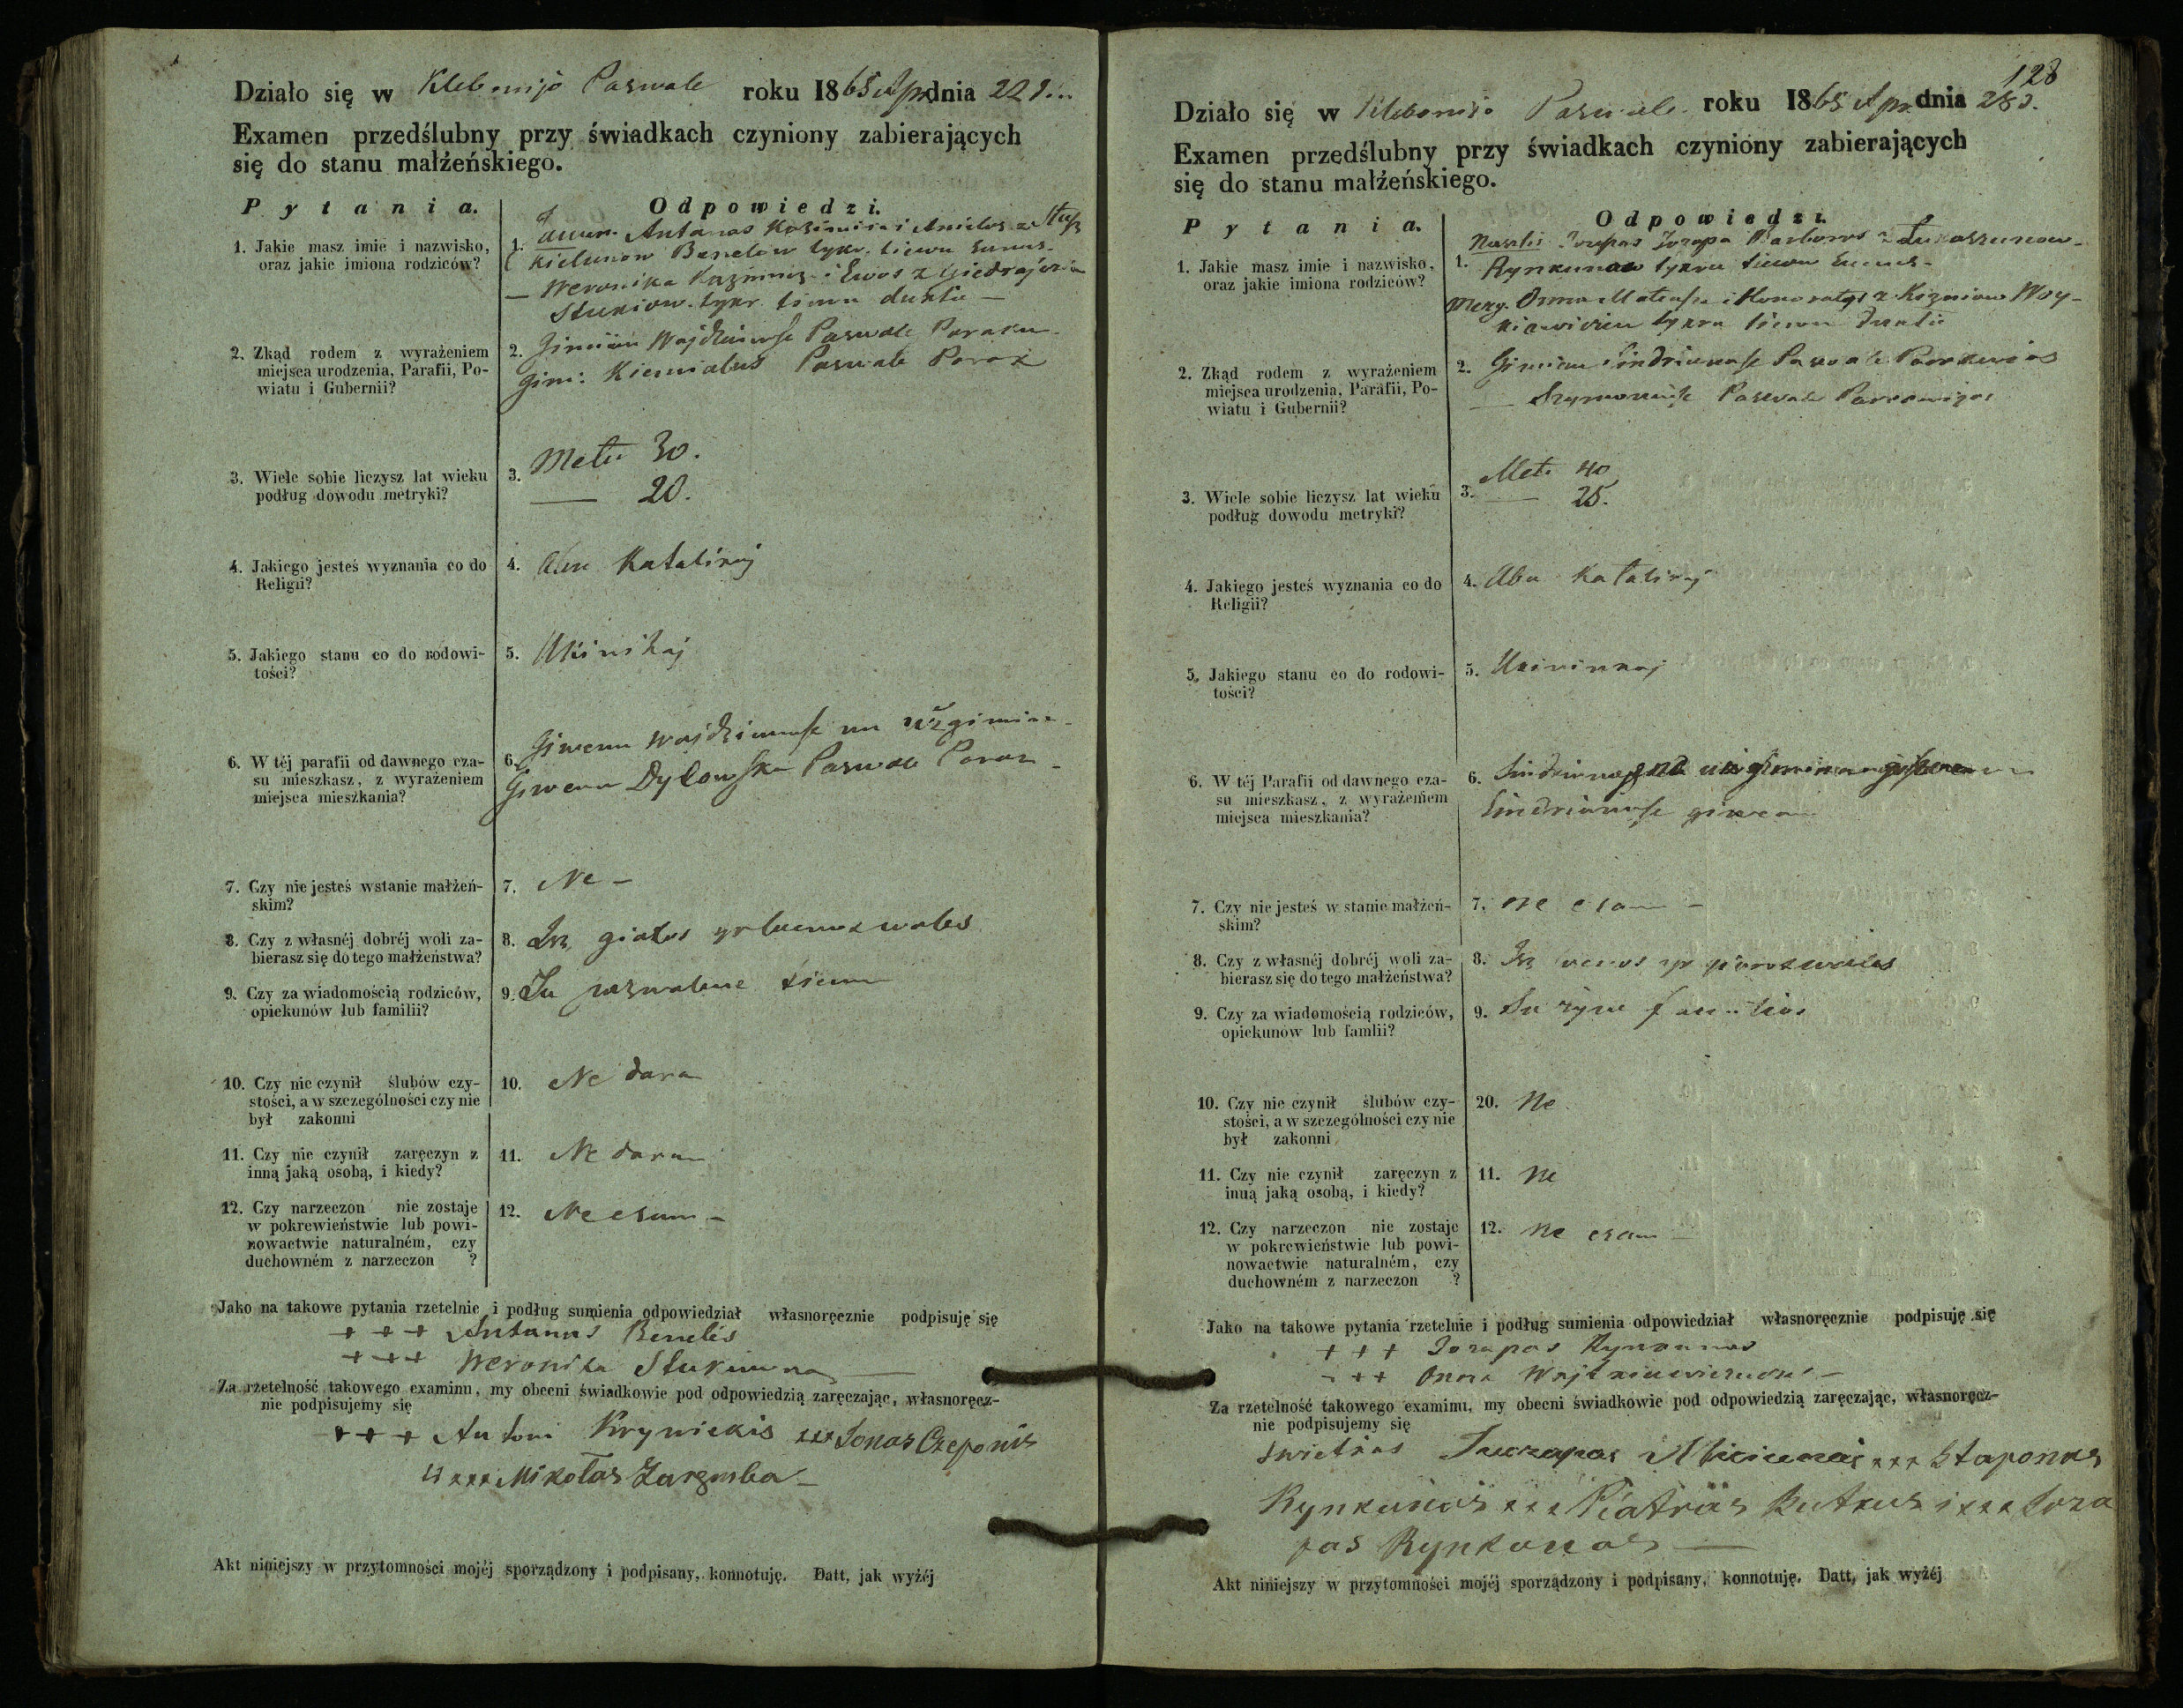 Działo się w Klebonijo Paswale roku 1865 Apr. dnia 22
Examen przedślubny przy świadkach czyniony zabierających
się do stanu małżeńskiego.
Pytania.
Odpowiedzi.
1. Jakie masz imie i nazwisko,
oraz jakie imiona rodziców?
1. Jawn. Antanas Kazimira i Anielos z
Kielunow Benelow tykr. tiewu sunus.
— Weronika Kazimir. i Ewos z Giedrajciu
Stukiow. tykr. tiewu duktie —
2. Zkąd rodem z wyrażeniem
miejsca urodzenia, Parafii, Po-
wiatu i Gubernii?
2. Gimiau Wajdziunuse Paswale Parakw.
Gim: Kiemialus Paswale Parak
3. Wiele sobie liczysz lat wieku
podług dowodu metryki?
3. Metu 30.
— 20.
4. Jakiego jesteś wyznania co do
Religii?
4. Abu Katalikaj
5. Jakiego stanu co do rodowi-
tości?
5. Ukinikaj
6. W téj parafii od dawnego cza-
su mieszkasz, z wyrażeniem
miejsca mieszkania?
6. Giwenu Wajdziunuse nu užgimima
Giwenu Paswale Parak
7. Czy nie jesteś wstanie małżeń-
skim?
7. Ne —
8. Czy z własnéj dobréj woli za-
bierasz się do tego małżeństwa?
8. Isz giaros yr
9. Czy za wiadomością rodziców,
opiekunów lub familii?
9. Su tiewu
10. Czy nie czynił ślubów czy-
stości, a w szczególności czy nie
był zakonni
10. Ne darau
11. Czy nie czynił zaręczyn z
inną jaką osobą, i kiedy?
11. Ne darau
12. Czy narzeczon nie zostaje
w pokrewieństwie lub powi-
nowactwie naturalném, czy
duchowném z narzeczon ?
12. Ne esam —
Jako na takowe pytania rzetelnie i podług sumienia odpowiedział własnoręcznie podpisuję się
+ + + Antanas Benelis
+ + + Weronika Stukiuwna
Za rzetelność takowego examinu, my obecni świadkowie pod odpowiedzią zaręczając, własnoręcz-
nie podpisujemy się
+ + + Antoni Krynickis xxx Jonas Czeponis
ir xxx Mikołas Zaremba —
Akt niniejszy w przytomności mojéj sporządzony i podpisany, konnotuję. Datt, jak wyżéj
128
Działo się w Klebonijo Paswale roku 1865 Apr. dnia 28
Examen przedślubny przy świadkach czyniony zabierających
się do stanu małżeńskiego.
Pytania.
Odpowiedzi.
1. Jakie masz imie i nazwisko,
oraz jakie imiona rodziców?
1. Naszlis Jozapas Jozapa Barboros z Lukaszunow
Rynkunow tykru tiewu sunus —
Merg. Onna Mateusza i Honoratys z Woy-
kiewiciu tykru tiewu duktie
2. Zkąd rodem z wyrażeniem
miejsca urodzenia, Parafii, Po-
wiatu i Gubernii?
2. Gimiau Sindriunuse Paswale Parakwios
— Paswale Parakwijos
3. Wiele sobie liczysz lat wieku
podług dowodu metryki?
3. Metu 40
— 25.
4. Jakiego jesteś wyznania co do
Religii?
4. Abu Katalikaj
5. Jakiego stanu co do rodowi-
tości?
5. Ukininkaj
6. W téj Parafii od dawnego cza-
su mieszkasz, z wyrażeniem
miejsca mieszkania?
6. Sindriunuse
Sindriunuse giwenu
7. Czy nie jesteś w stanie małżeń-
skim?
7. ne esam —
8. Czy z własnéj dobréj woli za-
bierasz się do tego małżeństwa?
8. Isz
9. Czy za wiadomością rodziców,
opiekunów lub famlii?
9. Su žyne familios
10. Czy nie czynił ślubów czy-
stości, a w szczególności czy nie
był zakonni
20. Ne
11. Czy nie czynił zaręczyn z
inuą jaką osobą, i kiedy?
11. Ne
12. Czy narzeczon nie zostaje
w pokrewieństwie lub powi-
nowactwie naturalném, czy
duchowném z narzeczon ?
12. Ne esam —
Jako na takowe pytania rzetelnie i podług sumienia odpowiedział własnoręcznie podpisuję się
+ + + Jozapas Rynkunas
- + + Onna Wojtkiewiczuwna —
Za rzetelność takowego examinu, my obecni świadkowie pod odpowiedzią zaręczając, własnoręcz-
nie podpisujemy się
Swietkas Juozapas xxx Staponas
Rynkunas xxx Piatras Butkus i xxx Joza
pas Rynkunas —
Akt niniejszy w przytomności mojéj sporządzony i podpisany, konnotuję. Datt, jak wyżéj